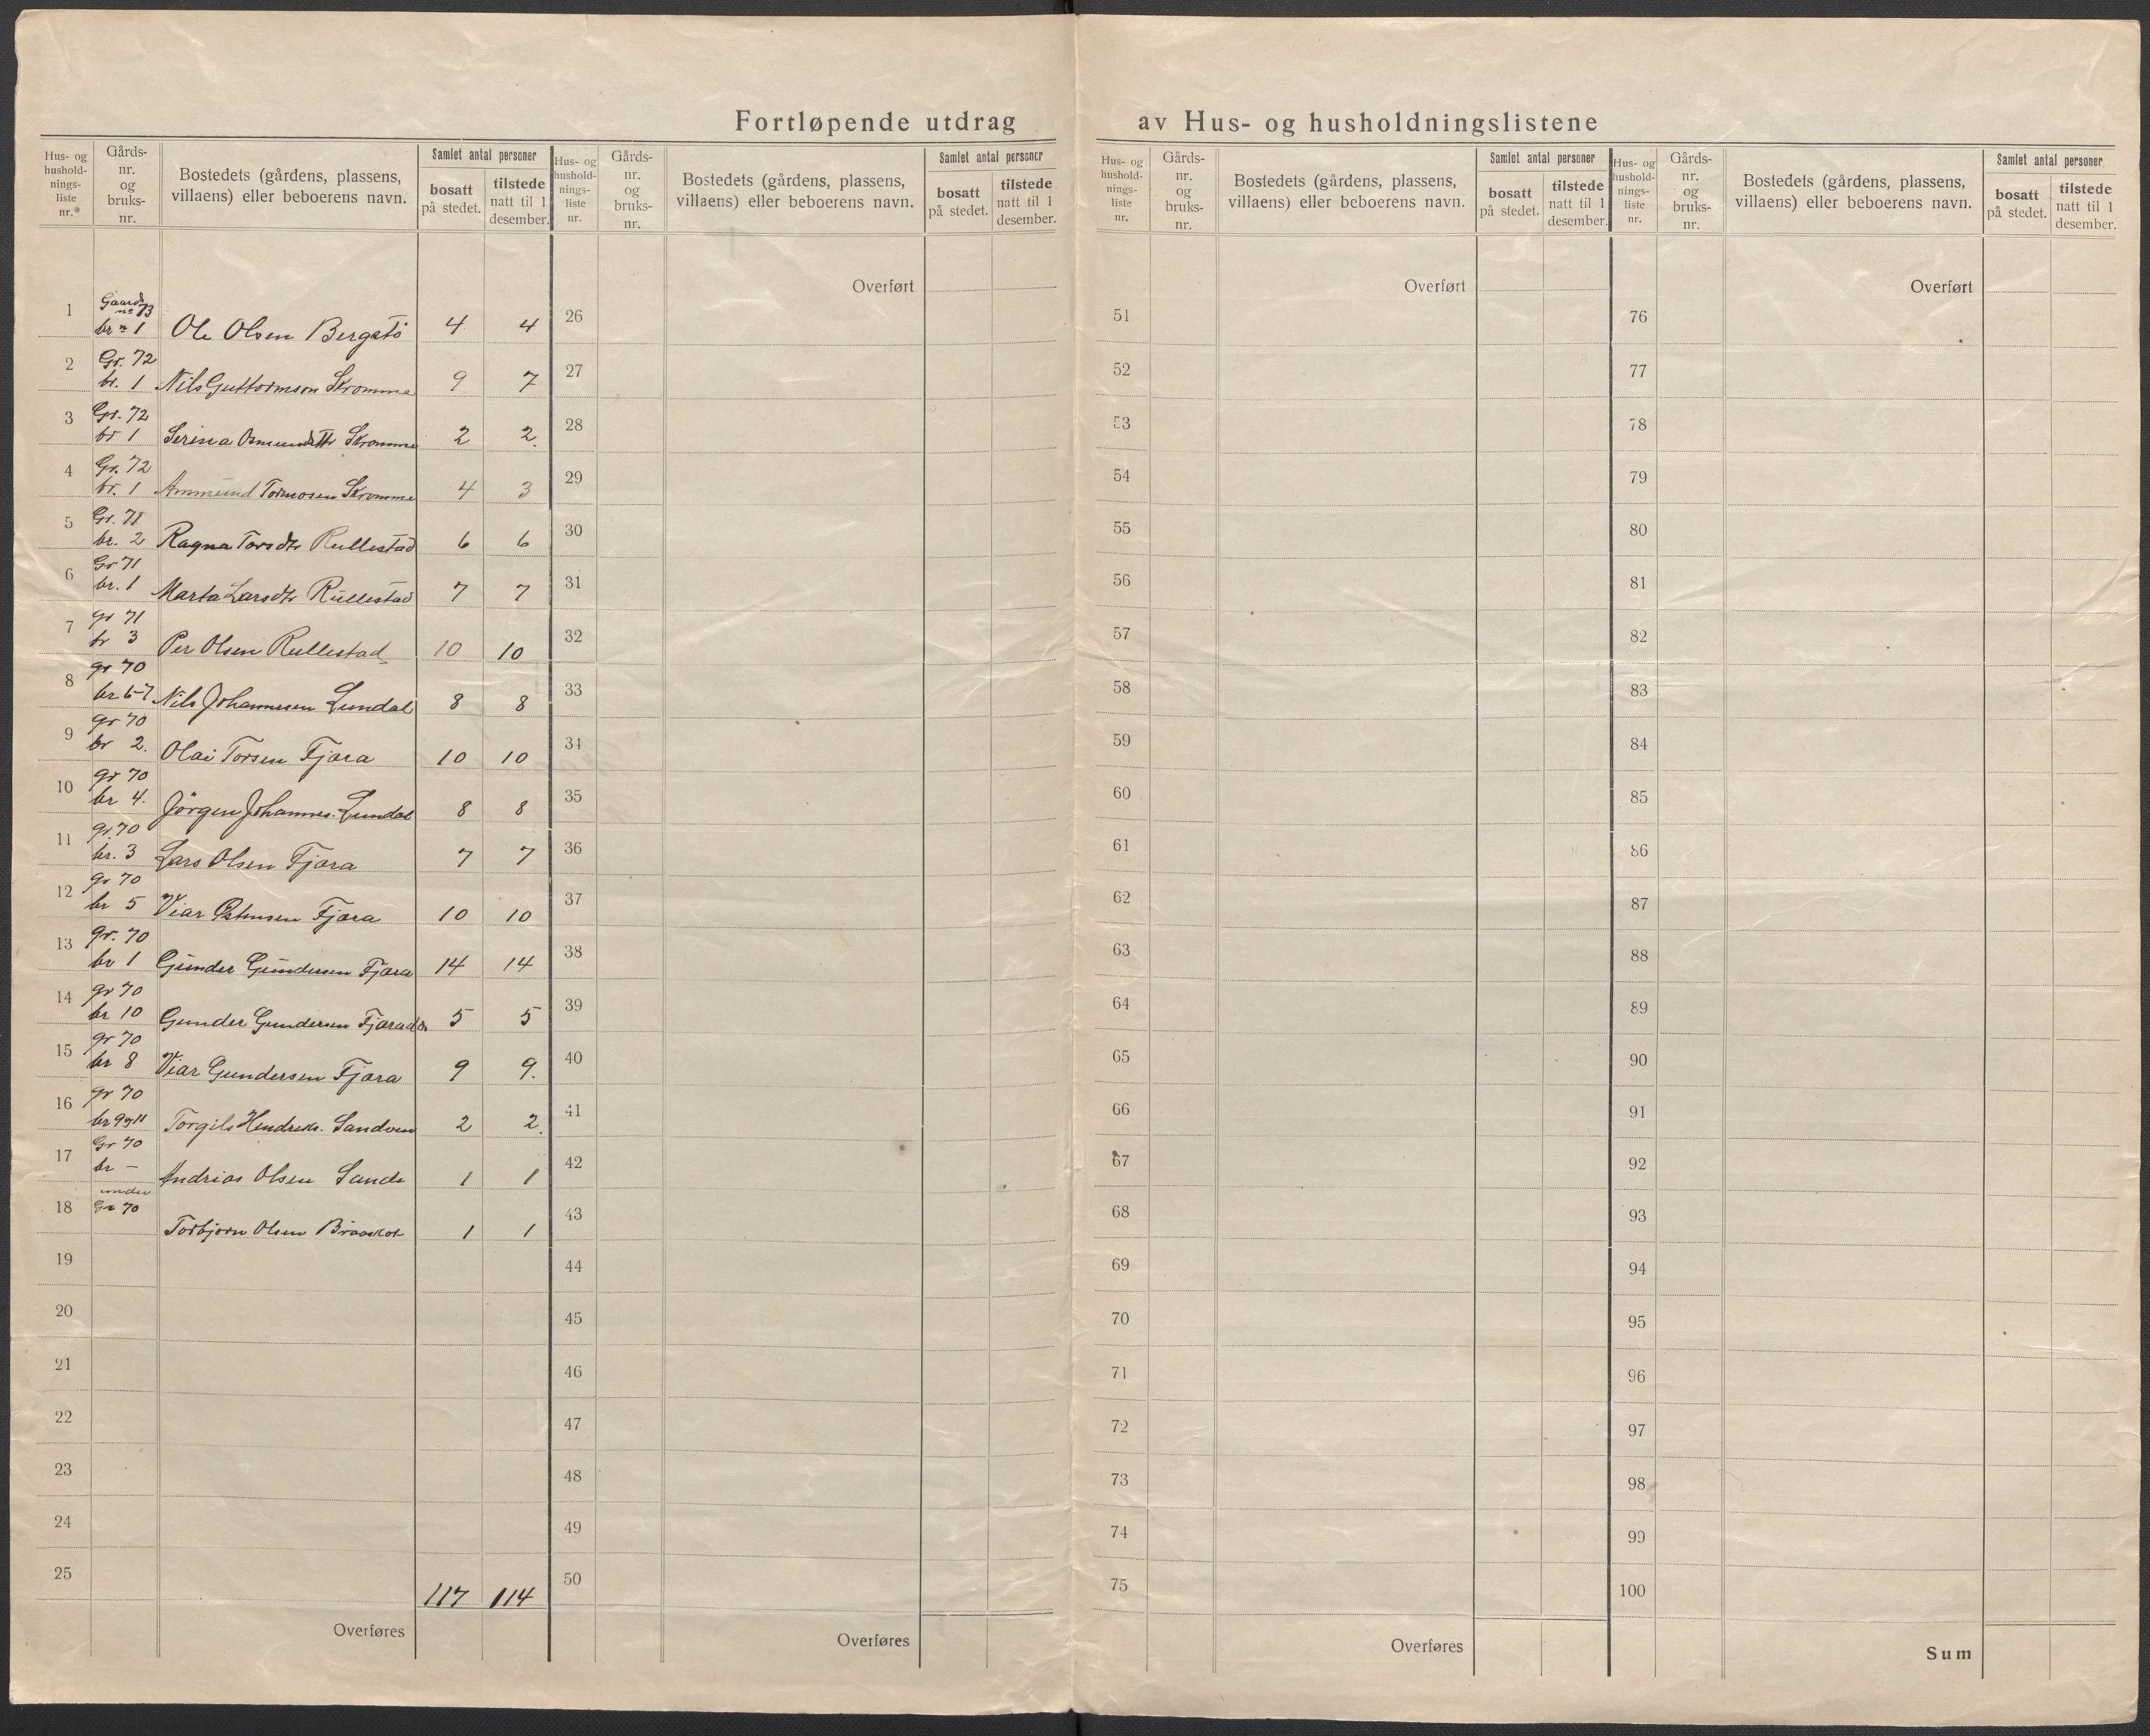 Fortløpende utdrag av Hus- og husholdningslistene
Hus- og hushold-nings-liste nr.* Gårds-nr. og bruks-nr. Bostedets (gårdens, plassens, villaens) eller beboerens navn. Samlet antal personer bosatt på stedet. tilstede natt til 1 desember.
Hus- og hushold-nings-liste nr. Gårds-nr. og bruks-nr. Bostedets (gårdens, plassens, villaens) eller beboerens navn. Samlet antal personer bosatt på stedet. tilstede natt til 1 desember.
Hus- og hushold-nings-liste nr. Gårds-nr. og bruks-nr. Bostedets (gårdens, plassens, villaens) eller beboerens navn. Samlet antal personer bosatt på stedet. tilstede natt til 1 desember.
Hus- og hushold-nings-liste nr. Gårds-nr. og bruks-nr. Bostedets (gårdens, plassens, villaens) eller beboerens navn. Samlet antal personer bosatt på stedet. tilstede natt til 1 desember.
1 Gaards nr 73 br nr 1 Ole Olsen Bergstö 4 4
2 Gr. 72 br. 1 Nils Guttormson Skromme 9 7
3 Gr. 72 br 1 Serina Osmundsdtr Skromme 2 2.
4 Gr. 72 br. 1 Ammund Tormosen Skromme 4 3
5 Gr. 71 br. 2 Ragna Torsdtr Rullestad 6 6
6 Gr 71 br. 1 Marta Larsdtr Rullestad 7 7
7 gr 71 br 3 Per Olsen Rullestad 10 10
8 gr 70 br 6-7 Nils Johannesen Lundal 8 8
9 gr 70 br 2. Olai Torsen Fjæra 10 10
10 gr 70 br 4. Jörgen Johannes. Lundal 8 8
11 gr. 70 br. 3 Lars Olsen Fjæra 7 7
12 gr 70 br 5 Viar Fjæra 10 10
13 gr. 70 br 1 Gunder Gundersen Fjæra 14 14
14 gr 70 br 10 Gunder Gundersen 5 5
15 gr 70 br 8 Viar Gundersen Fjæra 9 9.
16 gr 70 br 9 og 11 Torgils Hendriks. Sandven 2 2.
17 Gr 70 br - Andrias Olsen Sande 1 1
18 under Gr 70 Torbjørn Olsen 1 1
19
20
21
22
23
24
25
117 114
Overføres
Overført
26
27
28
29
30
31
32
33
34
35
36
37
38
39
40
41
42
43
44
45
46
47
48
49
50
Overføres
Overført
51
52
53
54
55
56
57
58
59
60
61
62
63
64
65
66
67
68
69
70
71
72
73
74
75
Overføres
Overført
76
77
78
79
80
81
82
83
84
85
86
87
88
89
90
91
92
93
94
95
96
97
98
99
100
Sum